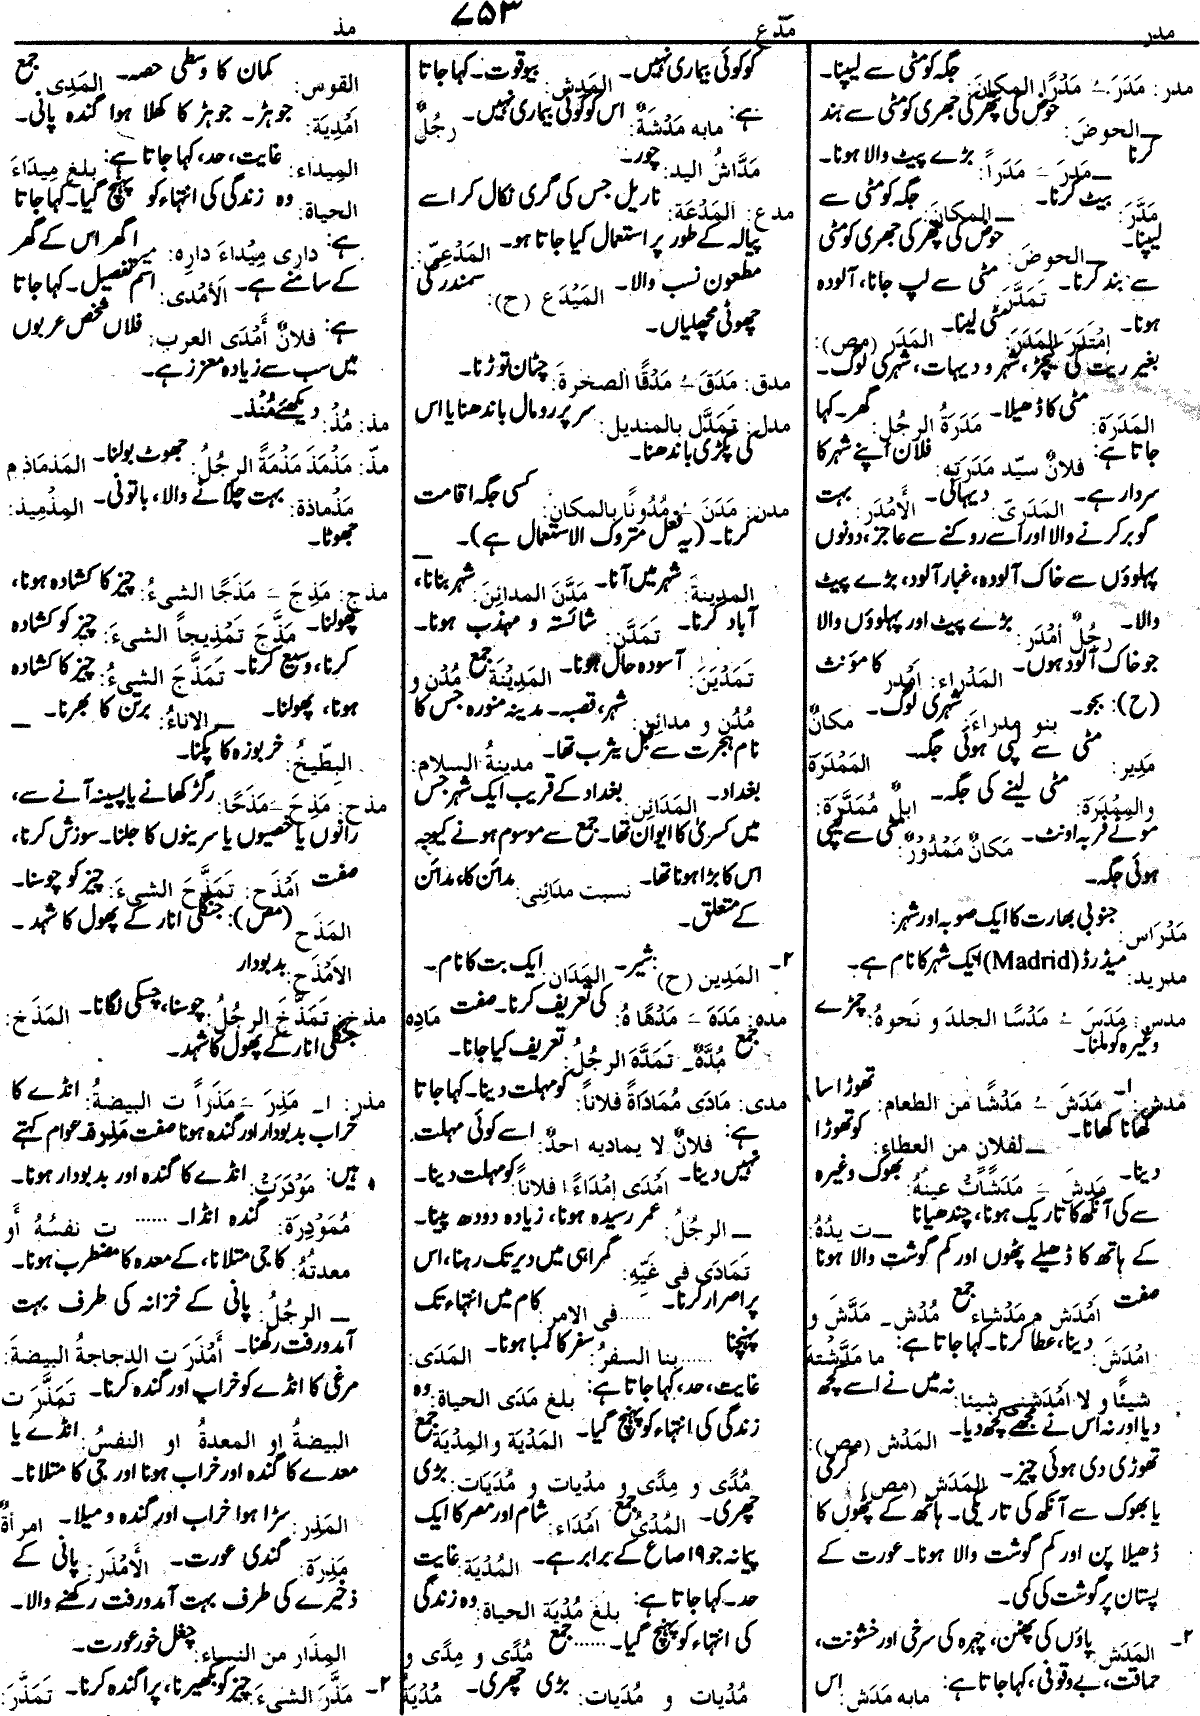 ۷۵۳
مدر
مدّع
مذ
مدر: مَدَرَ ـُ مَدْرًا المكانَ: جگہ کو مٹی سے لیپنا۔
ــ الحوضَ: حوض کی پتھر کی جھری کو مٹی سے بند
کرنا ــ مَدِرَ ـَ مَدَراً: بڑے پیٹ والا ہونا۔
مَدَّرَ: بیٹ کرنا۔ ــ المكانَ: جگہ کو مٹی سے
لیپنا۔ ــ الحوضَ: حوض کی پتھر کی جھری کو مٹی
سے بند کرنا۔ تَمَدَّرَ: مٹی سے لپ جانا، آلودہ
ہونا۔ اِمْتَدَرَ المَدَرَ: مٹی لینا۔ المَدَر (مص):
بغیر ریت کی کیچڑ، شہر و دیہات، شہر کی لوگ۔
المَدَرَة: مٹی کا ڈھیلا۔ مَدَرَةُ الرجُل: گھر۔ کہا
جاتا ہے: فلانٌ سيّد مَدَرَتِه: فلان اپنے شہر کا
سردار ہے۔ المَدَرِيّ: دیہاتی۔ الأَمْدَر: بہت
گوبر کرنے والا اور اسے روکنے سے عاجز، دونوں
پہلوؤں سے خاک آلودہ، غبار آلود، بڑے پیٹ
والا۔ رجُلٌ اَمْدَر: بڑے پیٹ اور پہلوؤں والا
جو خاک آلود ہوں۔ المَدْراء: اَمْدَر کا مؤنث
(ح): بجو۔ بنو مدراءَ: شہری لوگ۔ مكانٌ
مَدِير: مٹی سے لپی ہوئی جگہ۔ المَمْدَرَة
والمِمْدَرَة: مٹی لینے کی جگہ۔ ابلٌ مُمَدَّرَة:
موٹے فربہ اونٹ۔ مَكانٌ مَمْدُورٌ: مٹی سے لیپی
ہوئی جگہ۔
مَدْرَاس: جنوبی بھارت کا ایک صوبہ اور شہر:
مدريد: میڈرڈ (Madrid) ایک شہر کا نام ہے۔
مدس: مَدَسَ ـُ مَدْسًا الجلدَ و نَحوهُ: چمڑے
وغیرہ کو ملنا۔
مدش: ۱ـ مَدَشَ ـُ مَدْشًا من الطعام: تھوڑا سا
کھانا کھانا۔ ــ لفلان من العطاء: کو تھوڑا
دینا۔ مَدِشَ ـَ مَدَشًا ت عينهُ: بھوک وغیرہ
سے کی آنکھ کا تاریک ہونا، چندھیانا ــ ت يدُهُ:
کے ہاتھ کا ڈھیلے پٹھوں اور کم گوشت والا ہونا
صفت اَمْدَش م مَدْشاء جمع مُدْش۔ مَدَّشَ و
امْدَشَ: دینا، عطا کرنا۔ کہا جاتا ہے: ما مَدَّشْتهُ
شيئًا و لا اَمْدَشنى شيئا: نہ میں نے اسے کچھ
دیا اور نہ اس نے مجھے کچھ دیا۔ المَدْش (مص):
تھوڑی دی ہوئی چیز۔ المَدَش (مص): گرمی
یا بھوک سے آنکھ کی تاریکی۔ ہاتھ کے پٹھوں کا
ڈھیلا پن اور کم گوشت والا ہونا۔ عورت کے
پستان پر گوشت کی کمی۔
۲ـ المَدَش: پاؤں کی پھٹن، چہرہ کی سرخی اور خشونت،
حماقت، بے وقوفی، کہا جاتا ہے: مابه مَدَش: اس
کو کوئی بیماری نہیں۔ المَدِش: بیوقوف۔ کہا جاتا
ہے: مابه مَدْشَةٌ: اس کو کوئی بیماری نہیں۔ رجُلٌ
مَدَّاشُ اليد: چور۔
مدع: المَدْعَة: ناریل جس کی گری نکال کر اسے
پیالہ کے طور پر استعمال کیا جاتا ہو۔ المَدْعِيّ:
مطعون نسب والا۔ المَيْدَع (ح): سمندر کی
چھوٹی مچھلیاں۔
مدق: مَدَقَ ـُ مَدْقًا الصخرةَ: چٹان توڑنا۔
مدل: تَمَدَّل بالمنديل: سر پر رومال باندھنا یا اس
کی پگڑی باندھنا۔
مدن: مَدَنَ ـُ مُدُونًا بالمكان: کسی جگہ اقامت
کرنا۔ (یہ فعل متروک الاستعمال ہے)۔ ــ
المدينةَ: شہر میں آنا۔ مَدَّنَ المدائنَ: شہر بنانا،
آباد کرنا۔ تَمَدَّن: شائستہ و مہذب ہونا۔
تَمَدْيَنَ: آسودہ حال ہونا۔ المَدِيْنَة جمع مُدْن و
مُدُن و مدائن: شہر، قصبہ۔ مدینہ منورہ جس کا
نام ہجرت سے قبل یثرب تھا۔ مدينةُ السلام:
بغداد۔ المَدَائِن: بغداد کے قریب ایک شہر جس
میں کسریٰ کا ایوان تھا۔ جمع سے موسوم ہونے کیوجہ
اس کا بڑا ہونا تھا۔ نسبت مدَائِنى: مدائن کا، مدائن
کے متعلق۔
۲ـ المَدِين (ح): شیر۔ المَدَان: ایک بت کا نام۔
مده: مَدَهَ ـَ مَدْهًا هُ: کی تعریف کرنا۔ صفت مَادِه
جمع مُدَّهٌ۔ تَمَدَّهَ الرجُلُ: تعریف کیا جانا۔
مدى: مَادَى مُمَادَاةً فلاناً: کو مہلت دینا۔ کہا جاتا
ہے: فلانٌ لا يماديه احدٌ: اسے کوئی مہلت
نہیں دیتا۔ اَمْدَى اِمْدَاءً فلاناً: کو مہلت دینا۔
ــ الرجلُ: عمر رسیدہ ہونا، زیادہ دودھ پینا۔
تَمَادَى فى غَيِّهِ: گمراہی میں دیر تک رہنا، اس
پر اصرار کرنا۔ ......فى الامر: کام میں انتہاء تک
پہنچنا ......بنا السفرُ: سفر کا لمبا ہونا۔ المَدَى:
غایت، حد، کہا جاتا ہے: بلغ مَدَى الحياة: وہ
زندگی کی انتہاء کو پہنچ گیا۔ المَدْيَة والمِدْيَة جمع
مُدًى و مِدًى و مدْيات و مُدَيَات: بڑی
چھری۔ المُدْىُ جمع امْدَاء: شام اور مصر کا ایک
پیمانہ جو ۱۹ صاع کے برابر ہے۔ المُدْيَة: غایت
حد۔ کہا جاتا ہے: بلغ مُدْيَة الحياة: وہ زندگی
کی انتہاء کو پہنچ گیا۔......جمع مُدًى و مِدًى و
مُدْيات و مُدَيات: بڑی چھری۔ مُدْيَةُ
القوس: کمان کا وسطی حصہ۔ المَدِى جمع
اَمْدِيَة: جوہڑ۔ جوہڑ کا کھلا ہوا گندہ پانی۔
المِيداء: غایت، حد، کہا جاتا ہے: بلغ مِيدَاءَ
الحياة: وہ زندگی کی انتہاء کو پہنچ گیا۔ کہا جاتا
ہے: دارى مِيْداءَ دارِه: میرا گھر اس کے گھر
کے سامنے ہے۔ الأَمْدى: اسم تفضیل۔ کہا جاتا
ہے: فلانٌ أَمْدَى العرب: فلاں شخص عربوں
میں سب سے زیادہ معزز ہے۔
مذ: مُذْ: دیکھئے مُنْذ۔
مذّ: مَذْمَذَ مَذْمَةً الرجُلُ: جھوٹ بولنا۔ المَذماذ م
مَذْماذة: بہت چلانے والا، باتونی۔ المِذْمِيذ:
جھوٹا۔
مذج: مَذِجَ ـَ مَذَجًا الشىءُ: چیز کا کشادہ ہونا،
پھولنا۔ مَذَّجَ تَمْذِيجاً الشىءَ: چیز کو کشادہ
کرنا، وسیع کرنا۔ تَمَذَّجَ الشىءُ: چیز کا کشادہ
ہونا، پھولنا۔ ــ الاناءُ: برتن کا بھرنا۔ ــ
البِطّيخُ: خربوزہ کا پکنا۔
مذح: مَذِحَ ـَ مَذَحًا: رگڑ کھانے یا پسینہ آنے سے،
رانوں یا خصیوں یا سرینوں کا جلنا۔ سوزش کرنا،
صفت اَمْذَح: تَمَذَّحَ الشىءَ: چیز کو چوسنا۔
المَذَح (مص): جنگلی انار کے پھول کا شہد۔
الاَمْذَح: بدبودار
مذخ: تَمَذَّخَ الرجُلُ: چوسنا، چسکی لگانا۔ المَذَخ:
جنگلی انار کے پھول کا شہد۔
مذر: ۱ـ مَذِرَ ـَ مَذَراً ت البيضةُ: انڈے کا
خراب بدبودار اور گندہ ہونا صفت مَذِرة عوام کہتے
ہیں: مَوْذَرَتْ: انڈے کا گندہ اور بدبودار ہونا۔
مُمَوْذِرَة: گندہ انڈا۔ ...... ت نفسُهُ أو
معدتُهُ: کا جی متلانا، کے معدہ کا مضطرب ہونا۔
ــ الرجُلُ: پانی کے خزانہ کی طرف بہت
آمدورفت رکھنا۔ أَمْذَرَت الدجاجةُ البيضةَ:
مرغی کا انڈے کو خراب اور گندہ کرنا۔ تَمَذَّرَت
البيضةُ او المعدةُ او النفسُ: انڈے یا
معدے کا گندہ اور خراب ہونا اور جی کا متلانا۔
المَذِر: سڑا ہوا خراب اور گندہ و میلا۔ امرأةٌ
مَذِرَة: گندی عورت۔ الأَمْذَر: پانی کے
ذخیرے کی طرف بہت آمدورفت رکھنے والا۔
المِذَار من النساء: چغل خور عورت۔
۲ـ مَذَّرَ الشىءَ: چیز کو بکھیرنا، پراگندہ کرنا۔ تَمَذَّرَ: